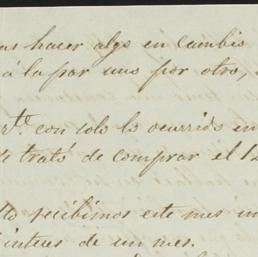 hacer algo en cambio
á la par uno por otro,
con solo lo ocurrido en
trató de comprar el 12
recibimos este mes in
interes de un mes.